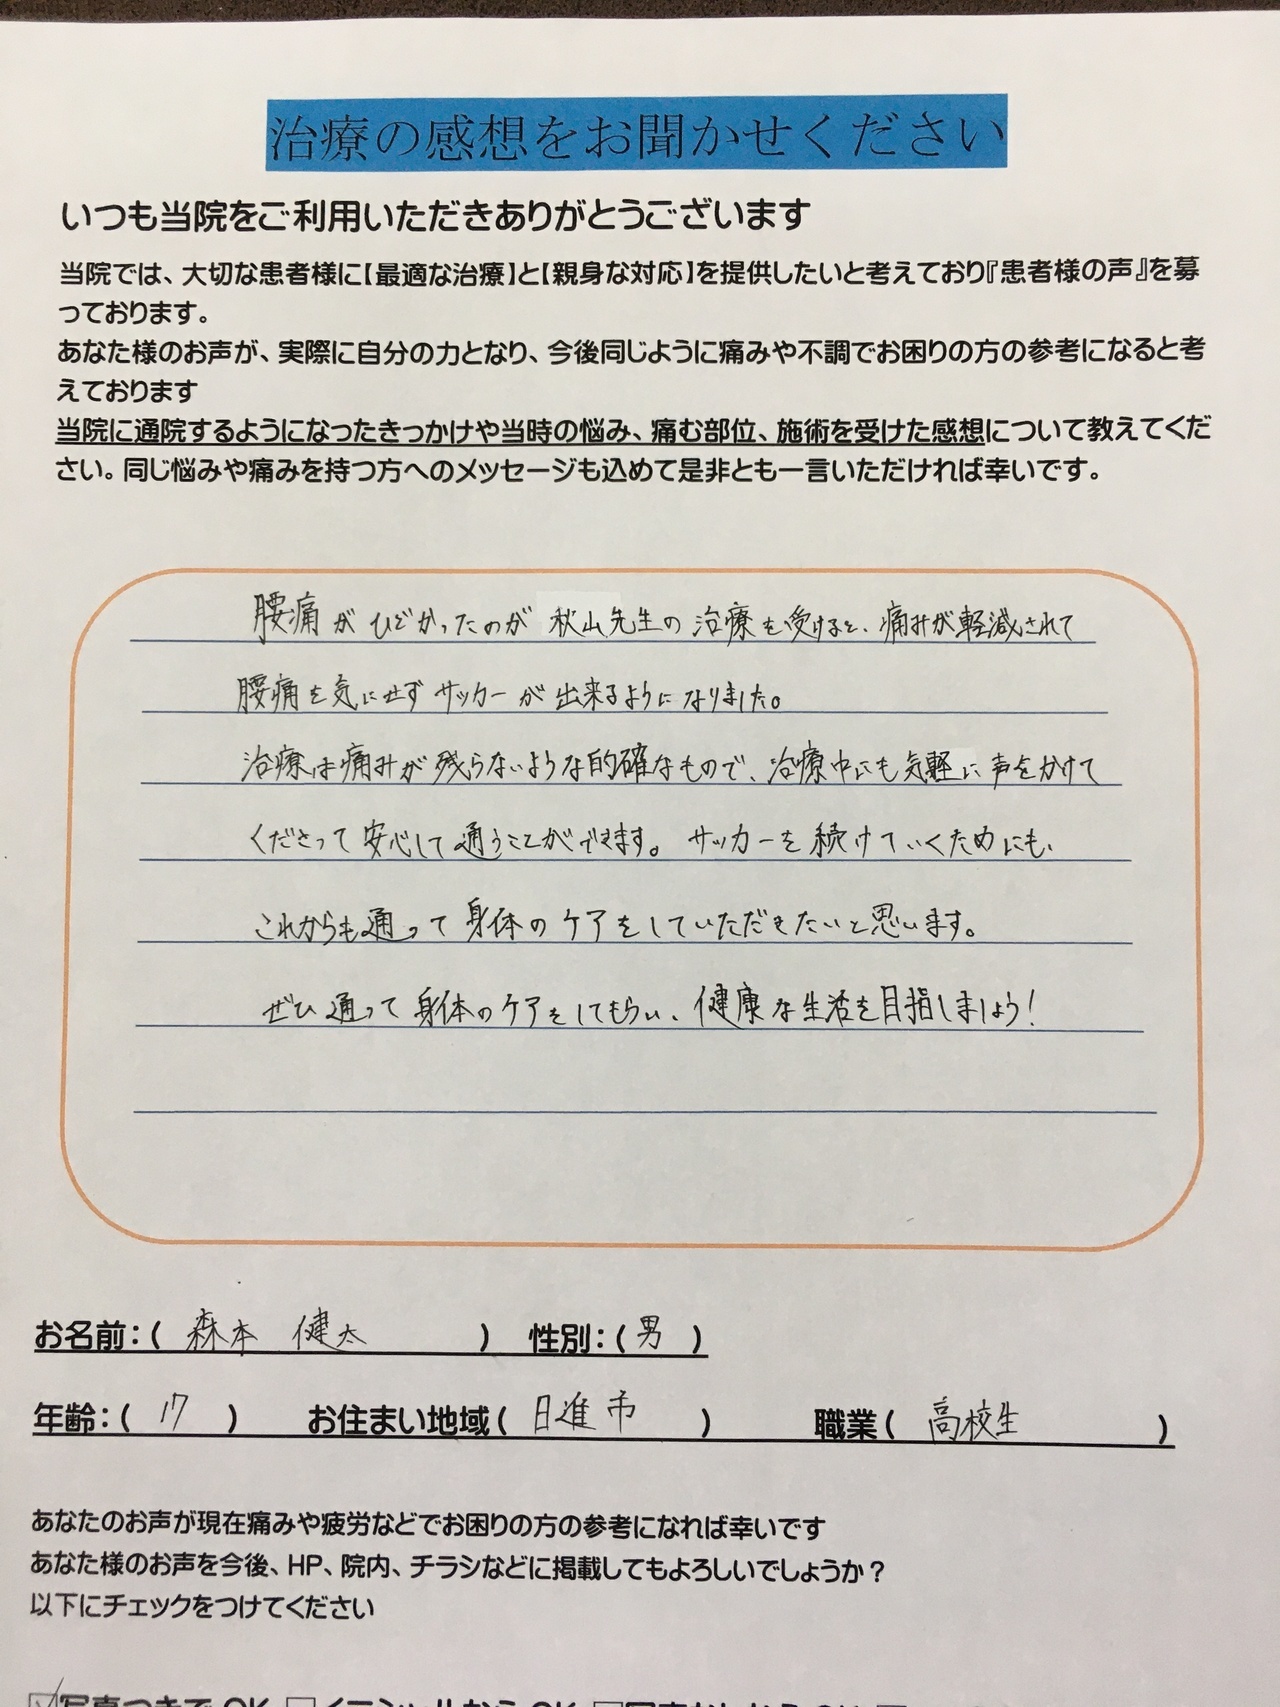 治療の感想をお聞かせください
いつも当院をご利用いただきありがとうございます
当院では、大切な患者様に【最適な治療】と【親身な対応】を提供したいと考えており『患者様の声』を募
っております。
あなた様のお声が、実際に自分の力となり、今後同じように痛みや不調でお困りの方の参考になると考
えております
当院に通院するようになったきっかけや当時の悩み、痛む部位、施術を受けた感想について教えてくだ
さい。同じ悩みや痛みを持つ方へのメッセージも込めて是非とも一言いただければ幸いです。
腰痛がひどかったのが秋山先生の治療を受けると、痛みが軽減されて
腰痛を気にせずサッカーが出来るようになりました。
治療は痛みが残らないような的確なもので、治療中にも気軽に声をかけて
くださって安心して通うことができます。サッカーを続けていくためにも、
これからも通って身体のケアをしていただきたいと思います。
ぜひ通って身体のケアをしてもらい、健康な生活を目指しましょう!
お名前:( 森本 健太 ) 性別:( 男 )
年齢:( 17 ) お住まい地域( 日進市 ) 職業( 高校生 )
あなたのお声が現在痛みや疲労などでお困りの方の参考になれば幸いです
あなた様のお声を今後、HP、院内、チラシなどに掲載してもよろしいでしょうか?
以下にチェックをつけてください